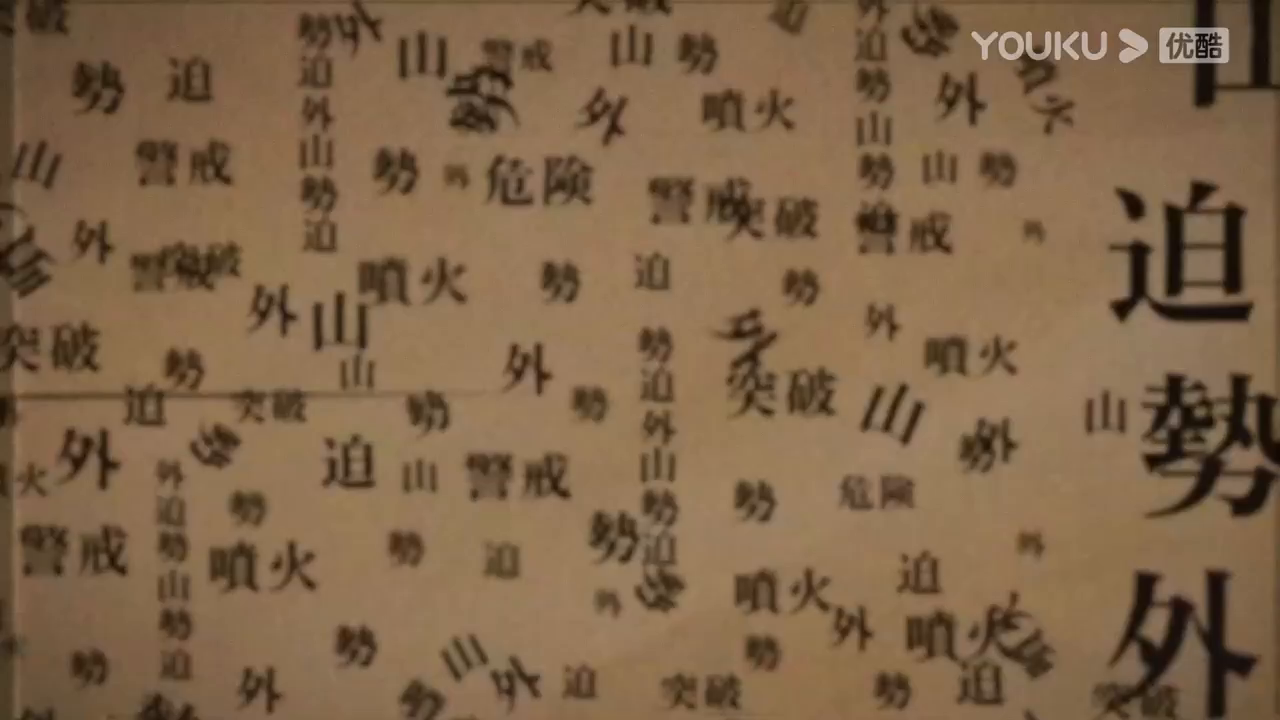 YOUKU 優酷
突破
勢 迫
山 警戒
勢 外 危険
山 勢
外 噴火
外 山 勢
警戒 突破
山
警戒
外
外
警戒 突破
噴火 勢 迫
勢
外 山
外
突破
勢 山
外
噴火
迫 突破 勢 勢
突破
山 山
外 勢
迫 山 警戒
勢 外
勢
勢
危険
警戒 噴火
勢 迫
勢
外
外
噴火 迫
外 噴火
勢 勢
外 迫 突破
勢
勢 迫
突破
勢迫外山勢迫
外迫勢山勢迫
勢迫外山勢迫
外迫勢山勢迫
山迫勢外